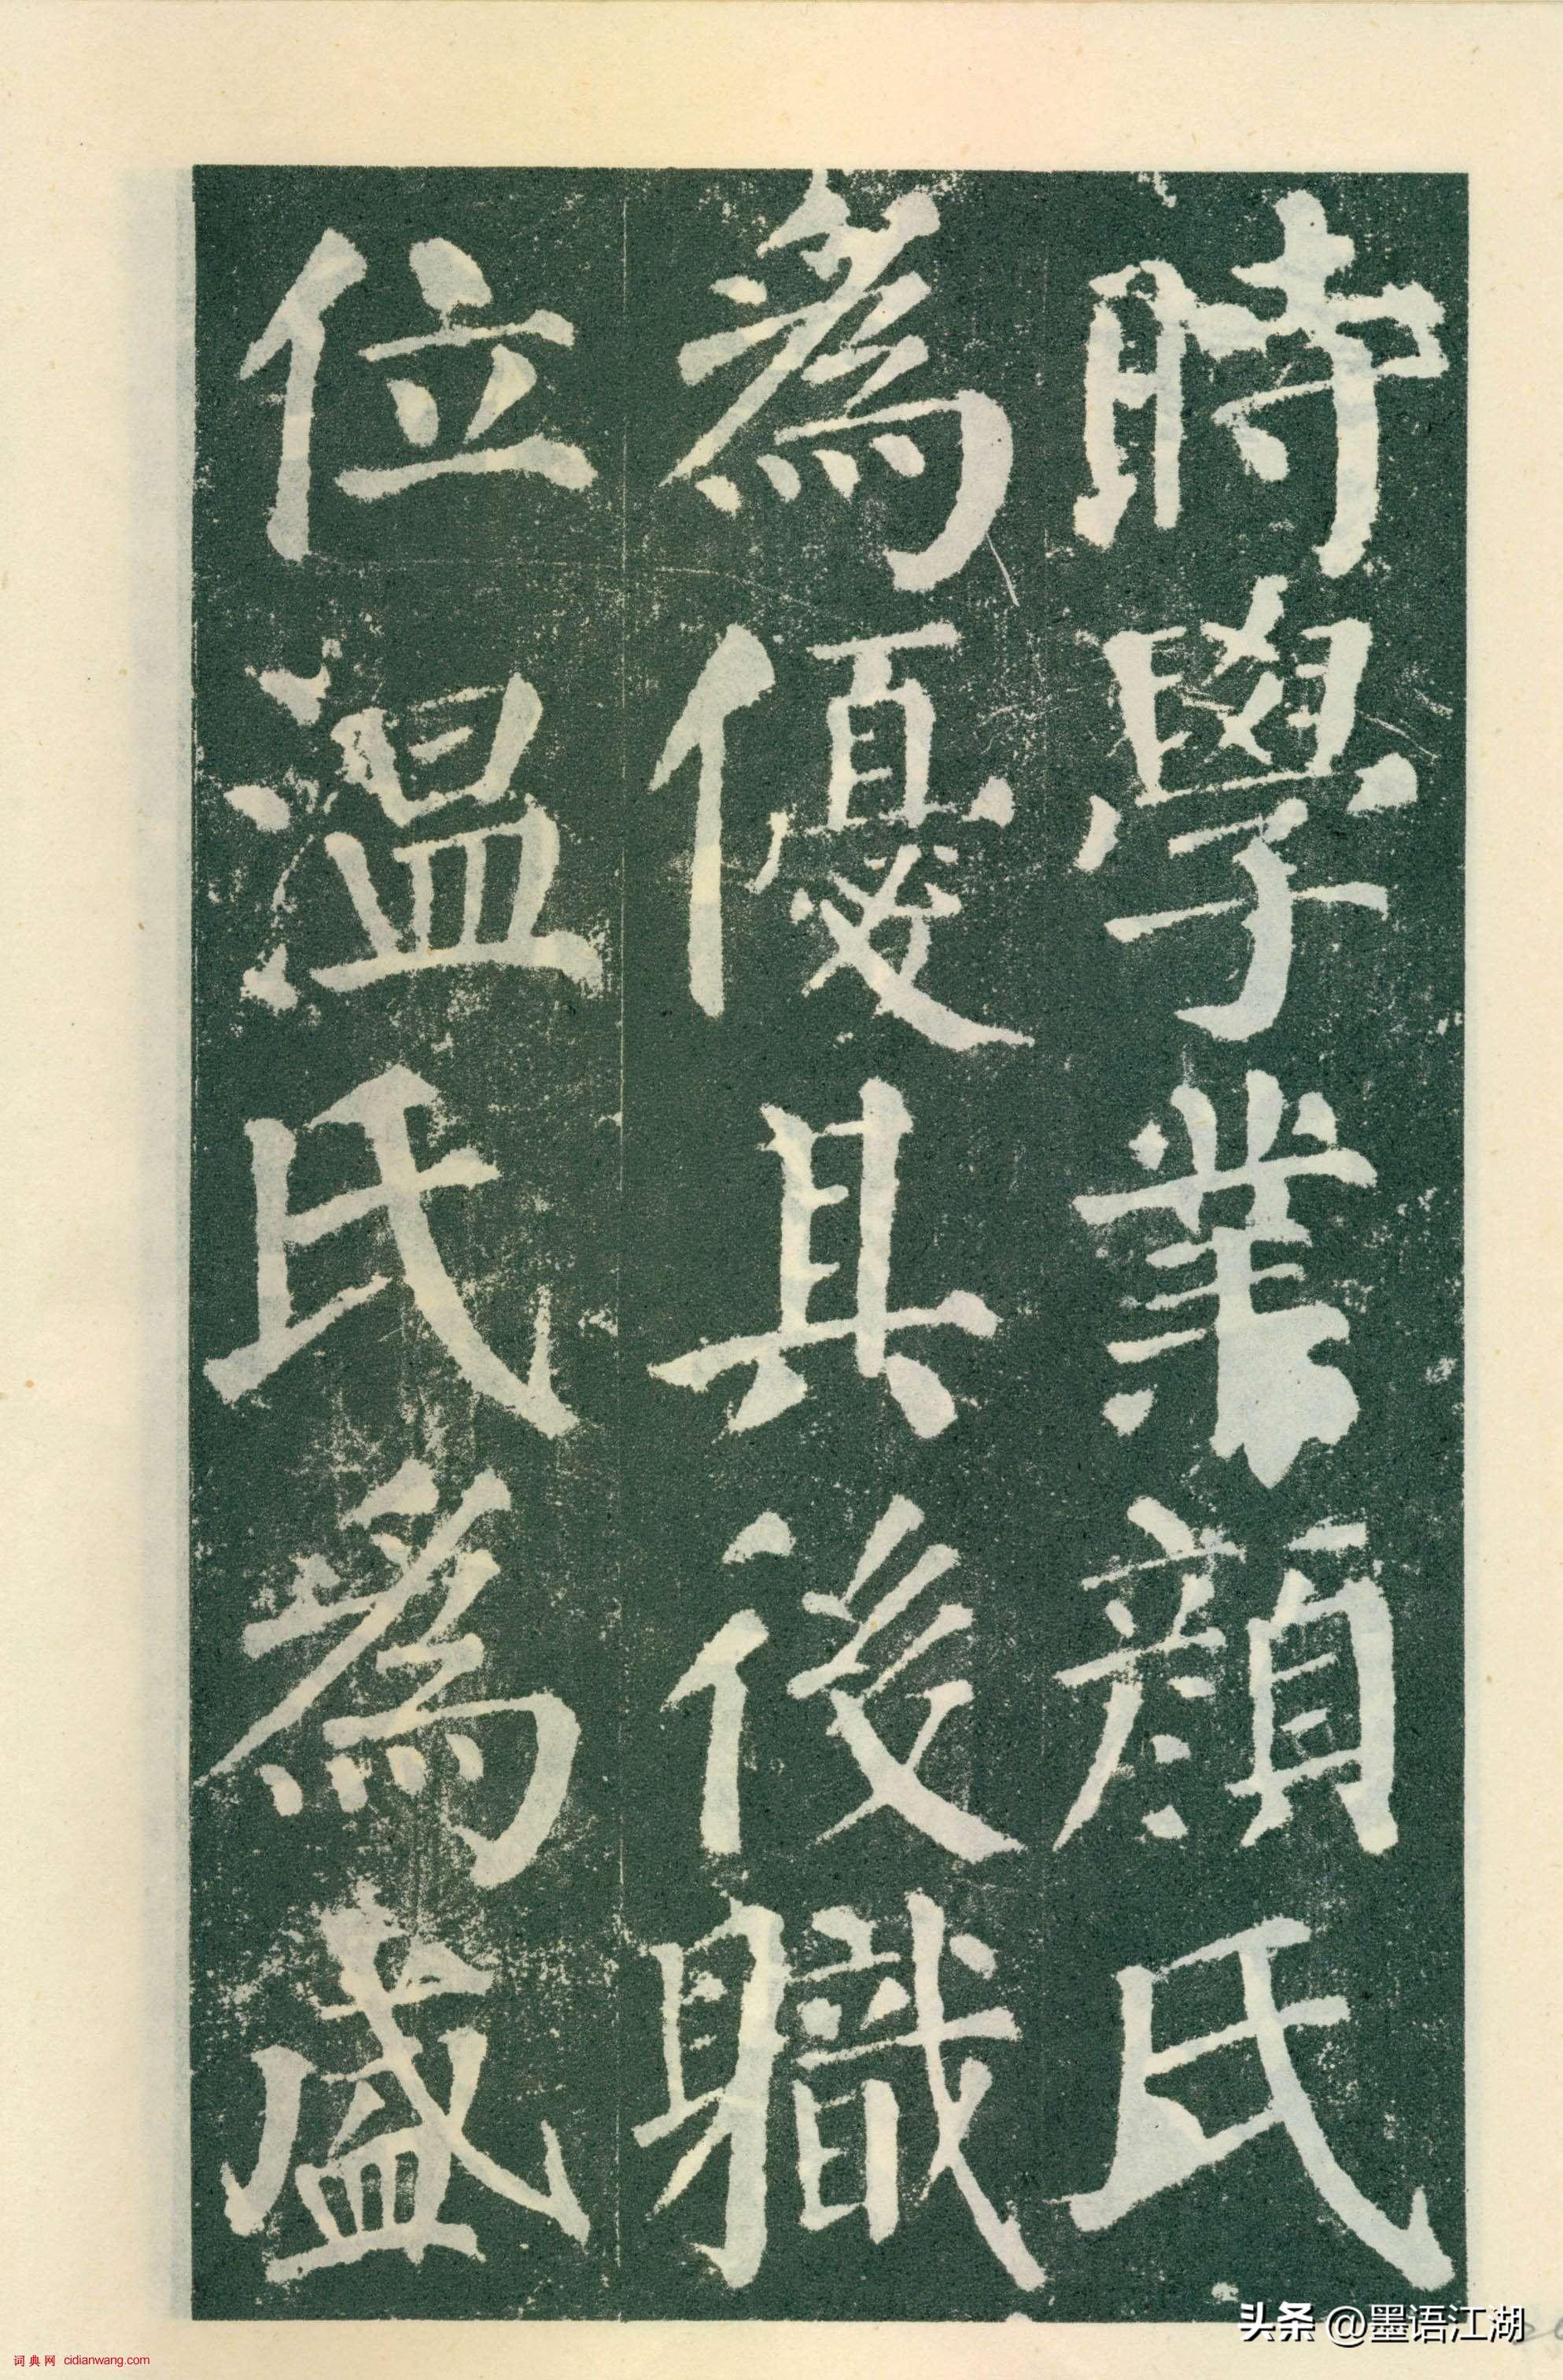 時學業顏氏
為優其後職
位温氏為盛
头条 @墨语江湖
词典网 cidianwang.com